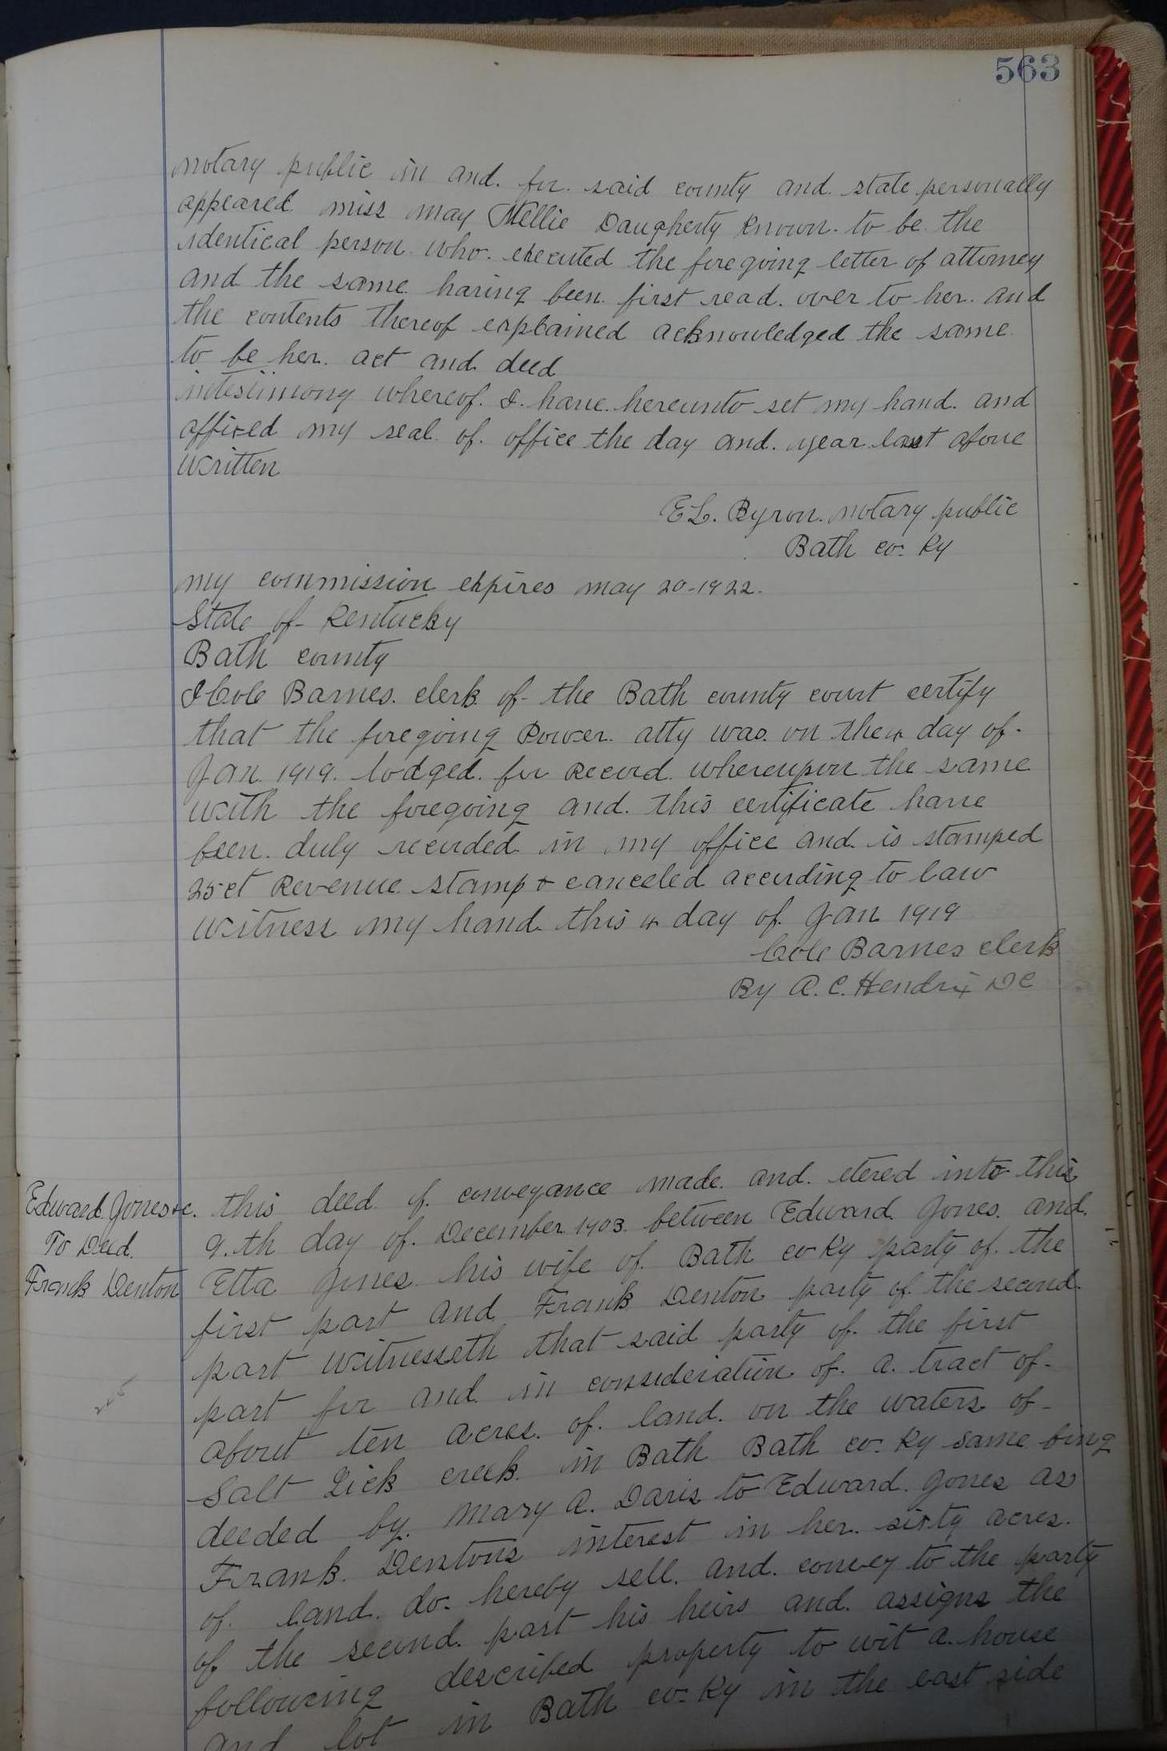 563
notary public in and. for. said county and. state personally
appeared miss may Nellie Daugherty known. to be the
identical person who. executed the foregoing letter of attorney
and the same having been first read. over to her. and
the contents thereof explained acknowledged the same
to be her. act and deed
intestimony whereof. I. have hereunto set my hand. and
affixed my seal of. office the day and. year last above
written
E L. Byron. notary public
Bath co. Ky
my commission expires may 20-1922.
State of Kentucky
Bath county
I Cole Barnes. clerk of the Bath county court certify
that the foregoing Power. atty was. on the 4 day of.
Jan 1919. lodged. for Record whereupon the same
with the foregoing and. this certificate have
been. duly recorded in my office and is stamped
25 ct Revenue stamp & canceled according to law
witness my hand this 4 day of. Jan 1919
Cole Barnes clerk
By A. C. Hendrix DC
Edward Jones &c.
To Deed.
Frank Denton
this deed of conveyance made and. etered into this
9.th day of. December 1903. between Edward Jones. and.
Etta Jones his wife of. Bath co Ky party of. the
first part and Frank Denton party of the second.
part witnesseth that said party of. the first
part for and in consideration of. a. tract of-
about ten acres. of. land. on the waters of-
Salt Lick creek. in Bath Bath co. Ky same bing
deeded by. Mary A. Davis to Edward. Jones as
Frank. Dentons interest in her. sixty acres.
of. land. do. hereby sell. and. convey to the party
of the second. part his heirs and. assigns the
following described property to wit a. house
and lot in Bath co. Ky in the east side